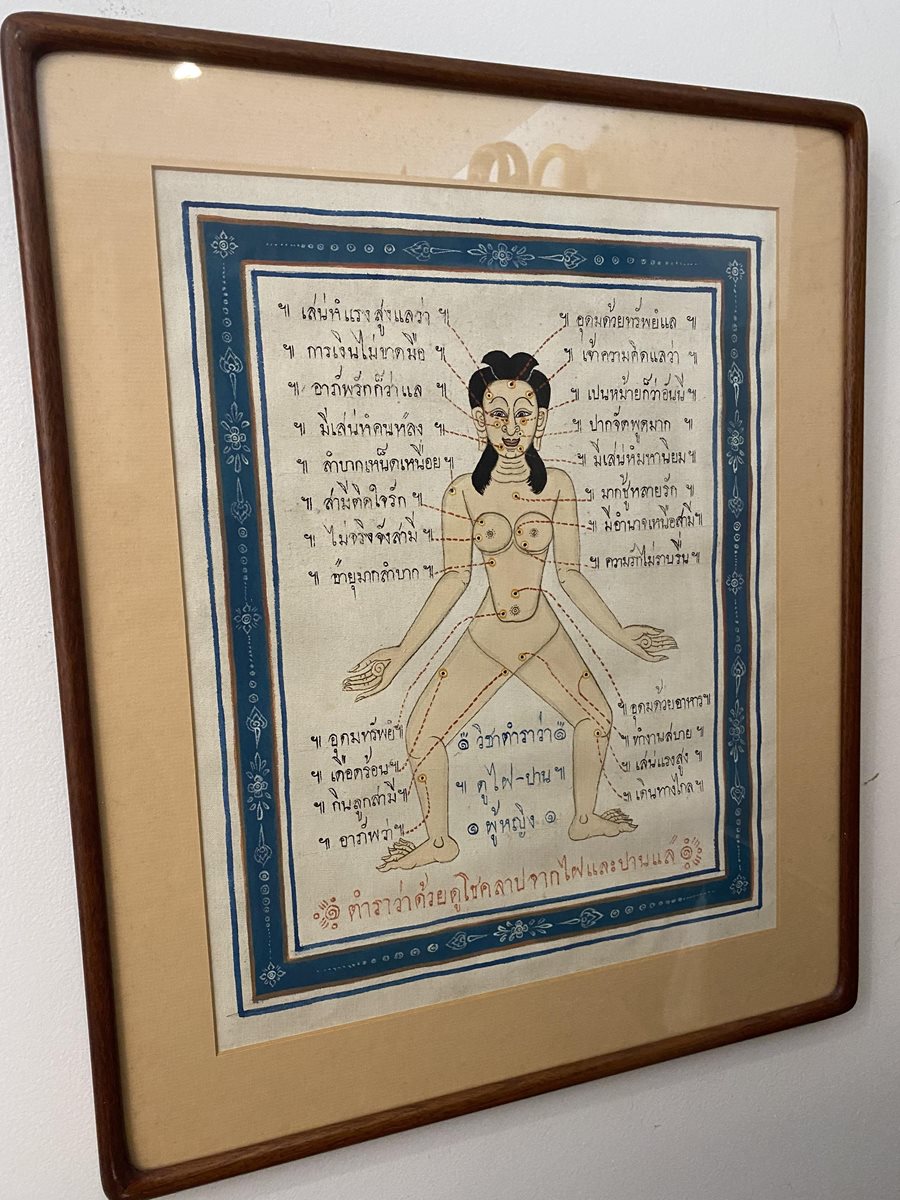 ๚ เสน่ห์แรงสูงแลว่า ๚
๚ การเงินไม่ขาดมือ ๚
๚ อาภัพรักก็ว่าแล ๚
๚ มีเสน่ห์คนหลง ๚
๚ ลำบากเหน็ดเหนื่อย ๚
๚ สามีติดใจรัก ๚
๚ ไม่จริงจังสามี ๚
๚ อายุมากลำบาก ๚
๚ อุดมด้วยทรัพย์แล ๚
๚ เจ้าความคิดแลว่า ๚
๚ เปนหม้ายก็ว่าอันนี้ ๚
๚ ปากจัดพูดมาก ๚
๚ มีเสน่ห์มหานิยม ๚
๚ มากชู้หลายรัก ๚
๚ มีอำนาจเหนือสามี ๚
๚ ความรักไม่ราบรื่น ๚
๚ อุดมทรัพย์ ๚
๚ เดือดร้อน ๚
๚ กินลูกสามี ๚
๚ อาภัพว่า ๚
๚ อุดมด้วยอาหาร ๚
๚ ทำงานสบาย ๚
๚ เสน่แรงสูง ๚
๚ เดินทางไกล ๚
๑ วิชาตำราว่า ๑
๚ ดูไฝ-ปาน ๚
๑ ผู้หญิง ๑
๑ ตำราว่าด้วยดูโชคลาปจากไฝและปานแล ๑